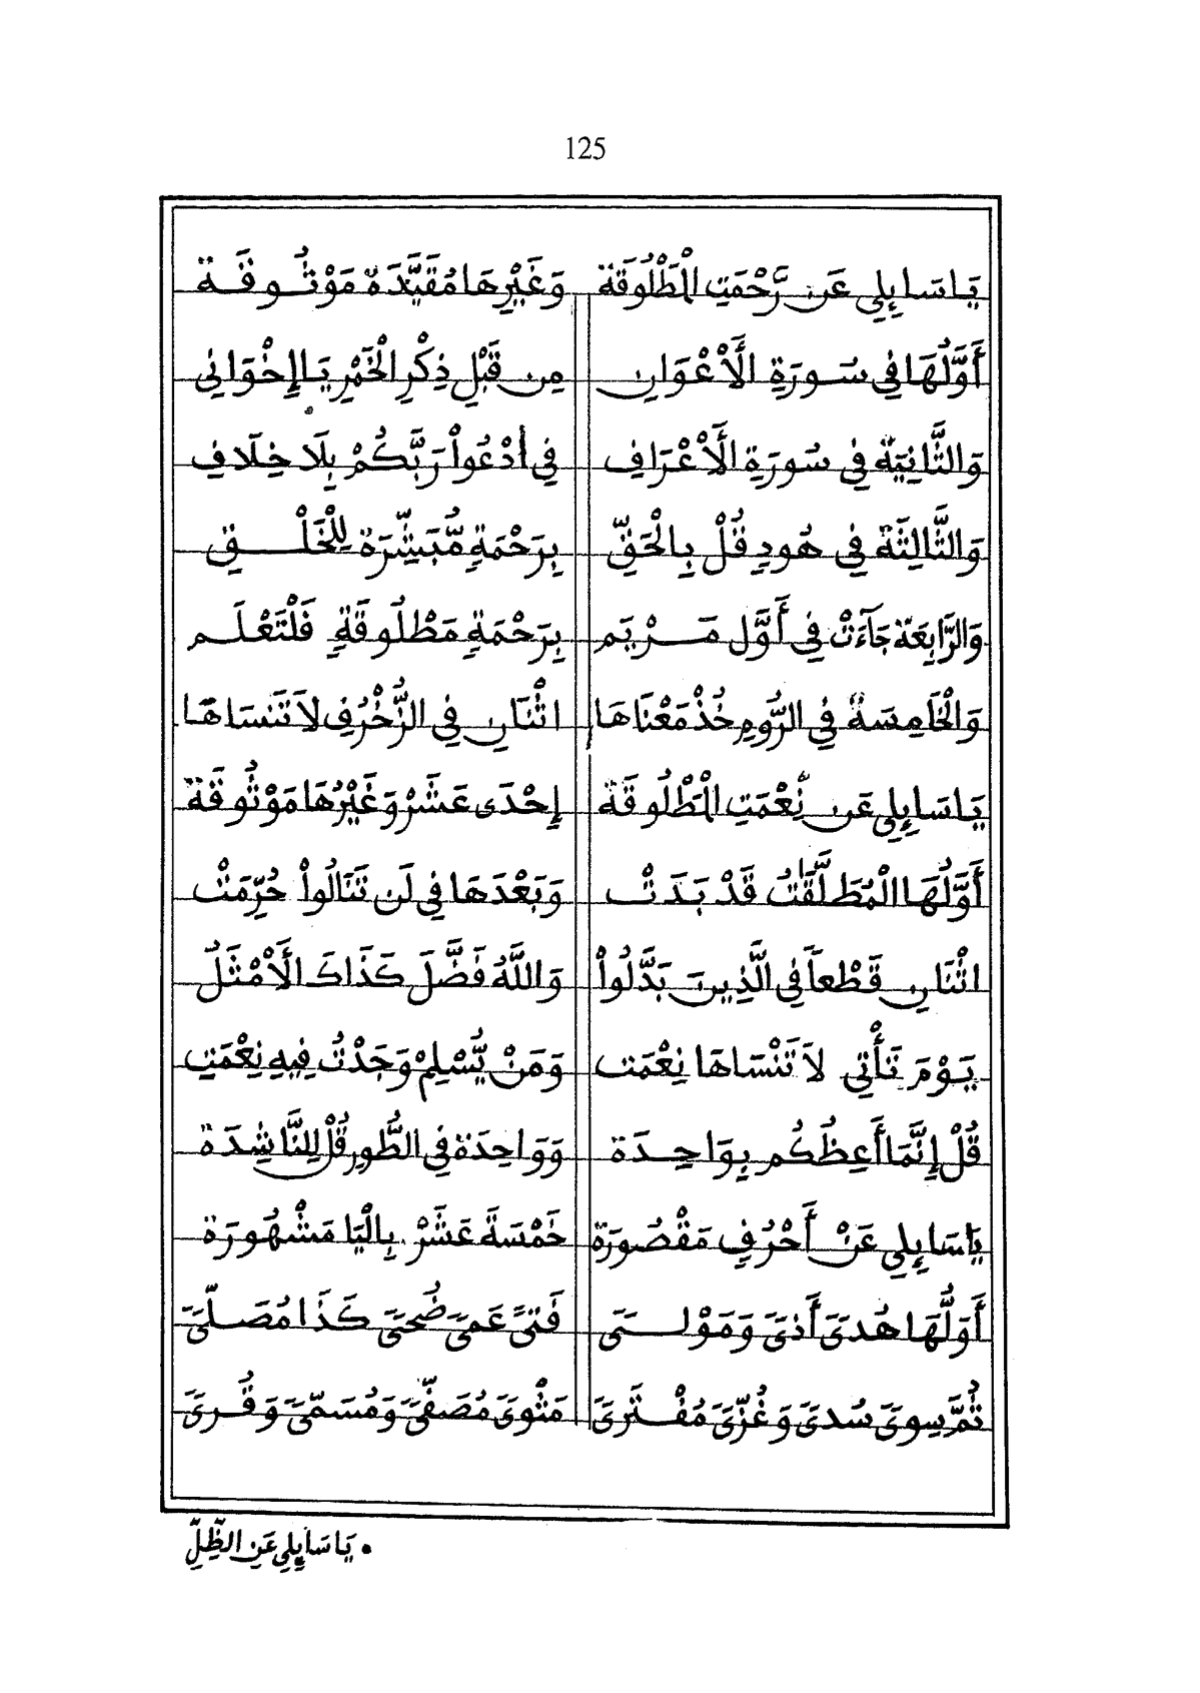 125
يَا سَايِلِي عَن رَّحْمَتِ الْمَطْلُوقَة وَغَيْرِهَا مُقَيَّدَة مَوْثُوفَة
أَوَّلُهَا فِي سُورَةِ الْأَعْوَانِ مِن قَبْلِ ذِكْرِ الْخَمْرِ يَا إِخْوَانِي
وَالثَّانِيَة فِي سُورَةِ الْأَعْرَافِ فِي ادْعُواْ رَبَّكُمْ بِلَا خِلَافِ
وَالثَّالِثَة فِي هُودٍ قُلْ بِالْحَقِّ بِرَحْمَةٍ مُّبَشِّرَة لِلْخَلْقِ
وَالرَّابِعَة جَآءَتْ فِي أَوَّل مَرْيَم بِرَحْمَةٍ مَطْلُوقَةٍ فَلْتَعْلَم
وَالْخَامِسَة فِي الرُّومِ خُذْ مَعْنَاهَا اثْنَانِ فِي الزُّخْرُفِ لَا تَنسَاهَا
يَا سَايِلِي عَن نِّعْمَتِ الْمَطْلُوقَة إِحْدَى عَشَرْ وَغَيْرُهَا مَوْثُوقَة
أَوَّلُهَا الْمُطَلَّقَاتُ قَدْ بَدَتْ وَبَعْدَهَا فِي لَن تَنَالُواْ حُرِّمَتْ
اثْنَانِ قَطْعاً فِي الَّذِينَ بَدَّلُواْ وَاللَّهُ فَضَّلَ كَذَاكَ الْأَمْثَلُ
يَوْمَ تَأْتِي لَا تَنْسَاهَا نِعْمَت وَمَنْ يُّسْلِمْ وَجَدْتُ فِيهِ نِعْمَتِ
قُلْ إِنَّمَا أَعِظُكُم بِوَاحِدَة وَوَاحِدَة فِي الطُّورِ قُلْ لِلنَّاشِدَة
يَا سَايِلِي عَنْ أَحْرُفٍ مَقْصُورَة خَمْسَةَ عَشَرْ بِالْيَا مَشْهُورَة
أَوَّلُهَا هُدىً أَذىً وَمَوْلىً فَتىً عَمىً ضُحىً كَذَا مُصَلّىً
ثُمَّ سِوىً سُدىً وَغُزّىً مُفْتَرىً مَثْوىً مُصَفّىً وَمُسَمّىً وَقُرىً
• يَا سَايِلِي عَنِ الظِّلِّ